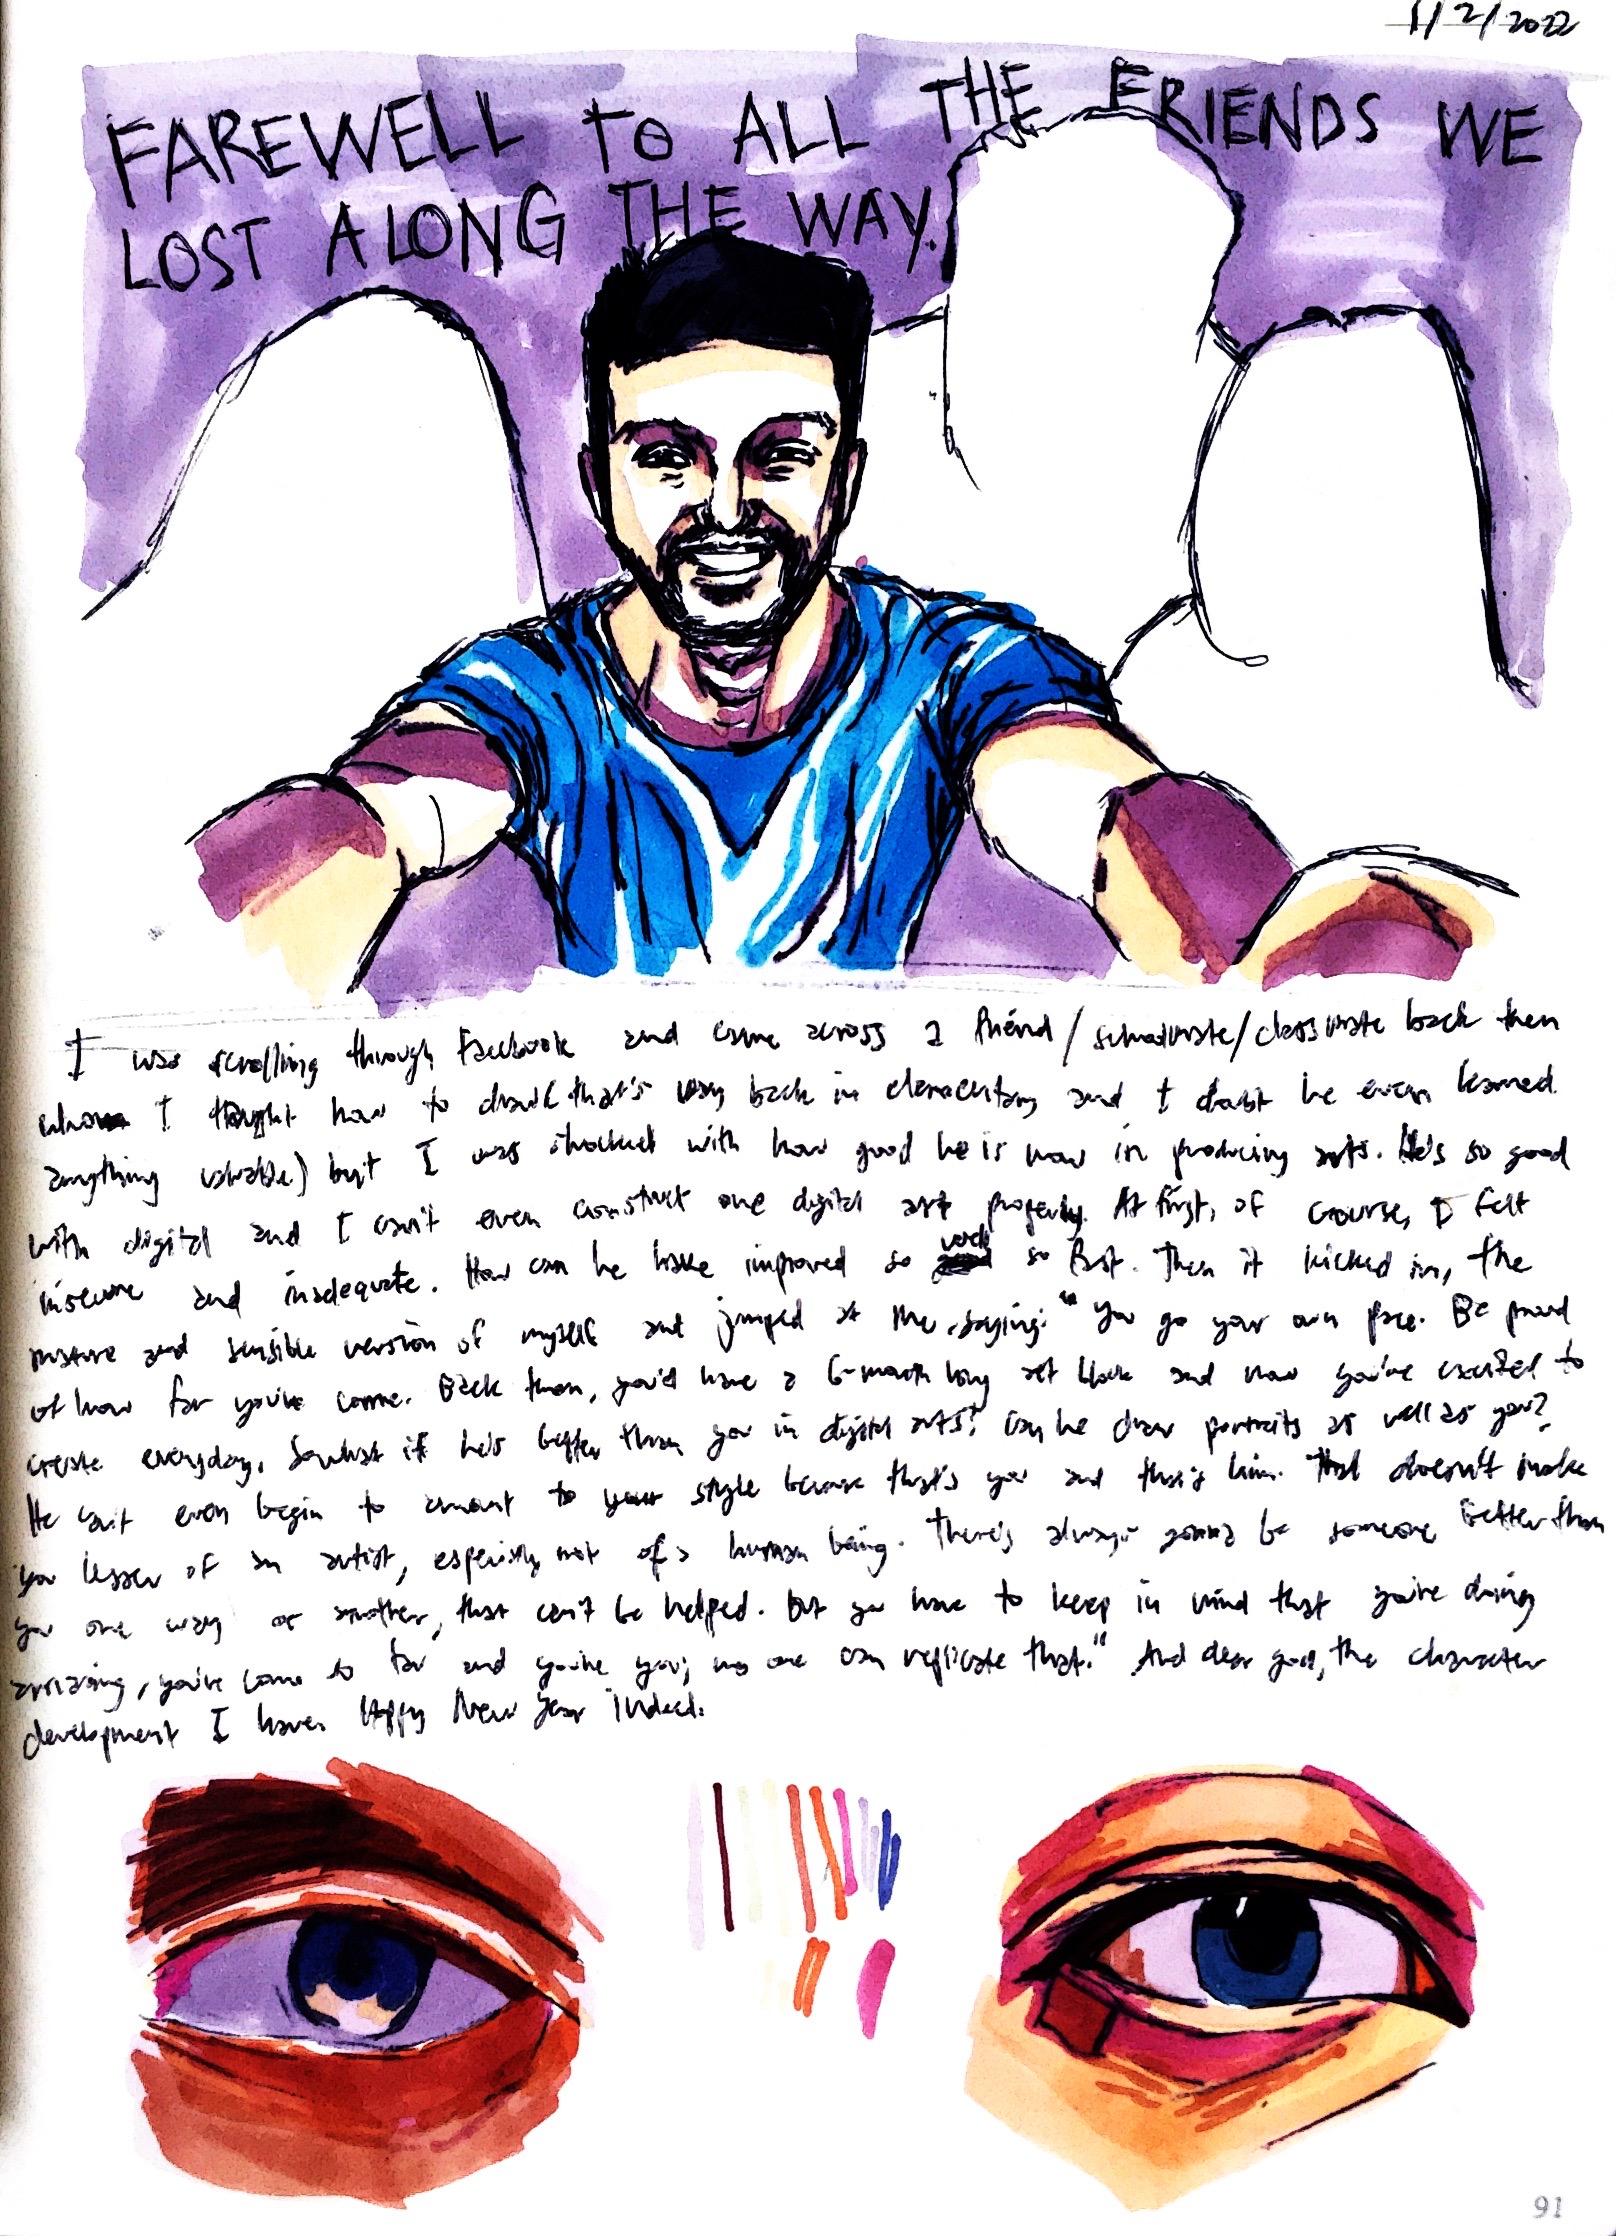 1/2/2022
FAREWELL TO ALL THE FRIENDS WE
LOST ALONG THE WAY.
I was scrolling through Facebook and came across a friend/schoolmate/classmate back then
whom I taught how to draw (that's way back in elementary and I doubt he even learned
anything valuable) but I was shocked with how good he is now in producing arts. He's so good
with digital and I can't even construct one digital art properly. At first, of course, I felt
insecure and inadequate. How can he have improved so much so fast. Then it kicked in, the
mature and sensible version of myself and jumped at me, saying: "You go your own pace. Be proud
of how far you've come. Back then, you'd have a 6-month long art block and now you're excited to
create everyday. So what if he's better than you in digital arts? Can he draw portraits as well as you?
He can't even begin to amount to your style because that's you and that's him. That doesn't make
you lesser of an artist, especially not of a human being. There's always gonna be someone better than
you one way or another, that can't be helped. But you have to keep in mind that you're doing
amazing, you've come so far and you're you; no one can replicate that." And dear god, the character
development I have. Happy New Year indeed.
91